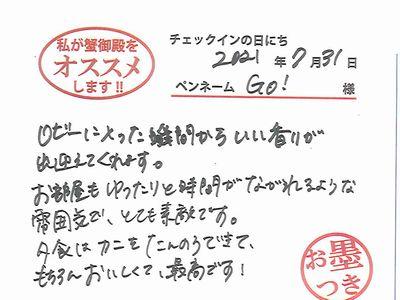 私が蟹御殿を
オススメ
します!!
チェックインの日にち
2021年7月31日
ペンネーム GO! 様
ロビーに入った瞬間からいい香りが
出迎えてくれます。
お部屋もゆったりと時間がながれるような
雰囲気で、とても素敵です。
夕食はカニをたんのうできて、
もちろんおいしくて、最高です!
お墨
つき